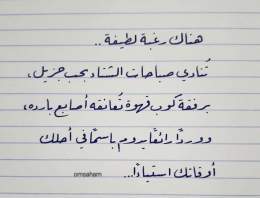 هناك رغبة لطيفة..
تُنادي صباحات الشتاء بحب جزيل،
برفقة كوب قهوة تُعانقه أصابع بارده،
ووردًا رائعًا يروم باسمًا في أحلك
أوقاتك استياءً...
omsaham